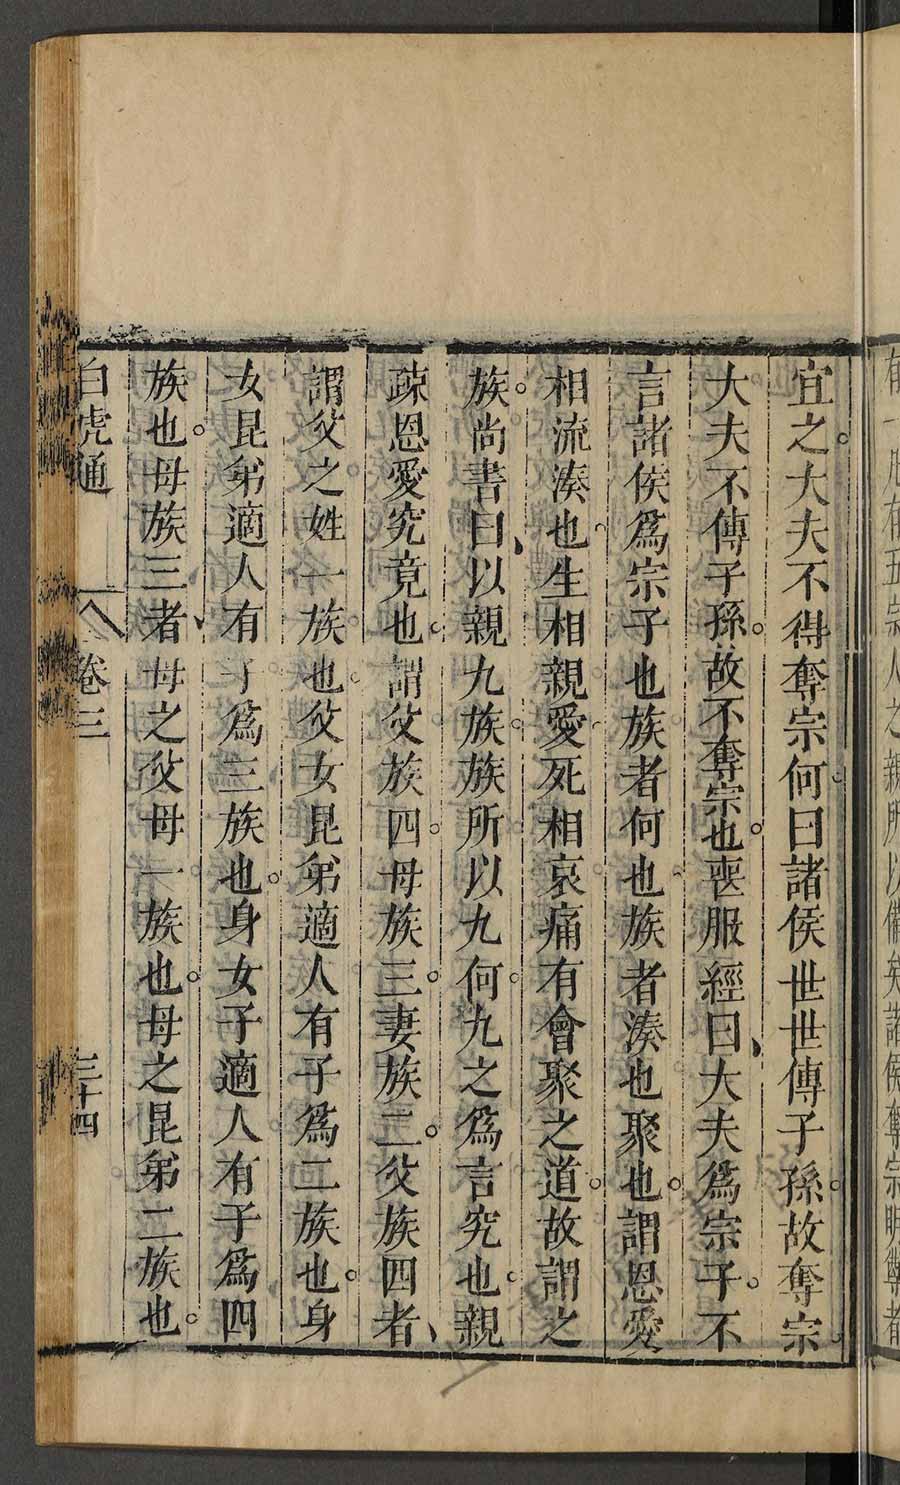 有一凡有五宗人之親所以備矣諸侯奪宗明尊者
宜之大夫不得奪宗何曰諸侯世世傳子孫故奪宗
大夫不傳子孫故不奪宗也喪服經曰大夫爲宗子不
言諸侯爲宗子也族者何也族者湊也聚也謂恩愛
相流湊也生相親愛死相哀痛有會聚之道故謂之
族尚書曰以親九族族所以九何九之爲言究也親
疎恩愛究竟也謂父族四母族三妻族二父族四者
謂父之姓一族也父女昆弟適人有子爲二族也身
女昆弟適人有子爲三族也身女子適人有子爲四
族也母族三者母之父母一族也母之昆弟二族也
白虎通 卷三 三十四